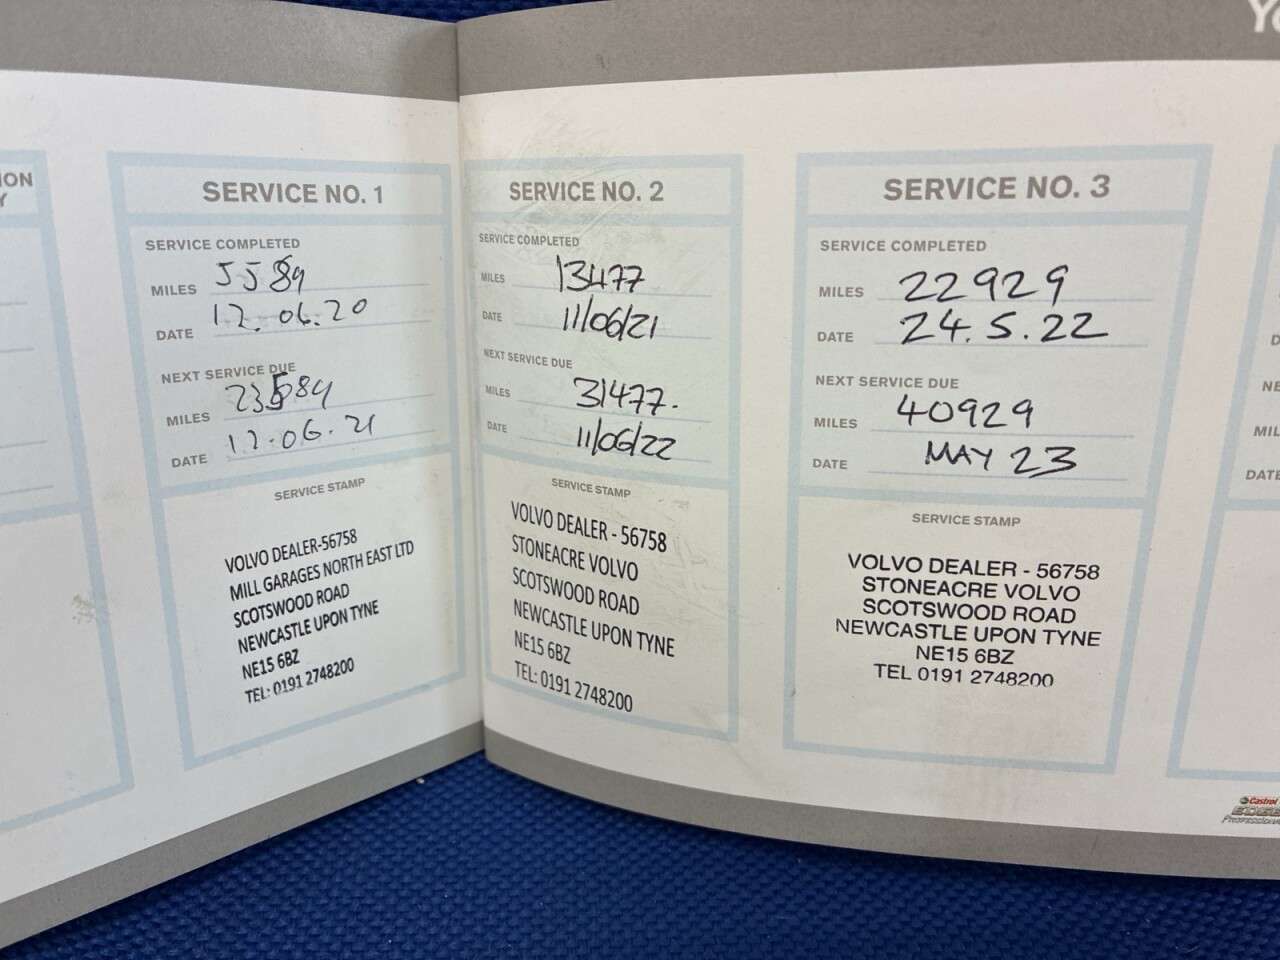 Yo
ION
Y
SERVICE NO. 1
SERVICE COMPLETED
MILES 5589
DATE 12.06.20
NEXT SERVICE DUE
MILES 23589
DATE 12.06.21
SERVICE STAMP
VOLVO DEALER-56758
MILL GARAGES NORTH EAST LTD
SCOTSWOOD ROAD
NEWCASTLE UPON TYNE
NE15 6BZ
TEL: 0191 2748200
SERVICE NO. 2
SERVICE COMPLETED
MILES 13477
DATE 11/06/21
NEXT SERVICE DUE
MILES 31477.
DATE 11/06/22
SERVICE STAMP
VOLVO DEALER - 56758
STONEACRE VOLVO
SCOTSWOOD ROAD
NEWCASTLE UPON TYNE
NE15 6BZ
TEL: 0191 2748200
SERVICE NO. 3
SERVICE COMPLETED
MILES 22929
DATE 24.5.22
NEXT SERVICE DUE
MILES 40929
DATE MAY 23
SERVICE STAMP
VOLVO DEALER - 56758
STONEACRE VOLVO
SCOTSWOOD ROAD
NEWCASTLE UPON TYNE
NE15 6BZ
TEL 0191 2748200
D
NE
MIL
DATE
Castrol
EDGE
Professional